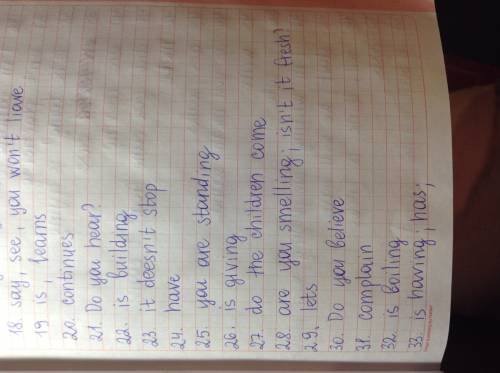 18. say, see, you won't leave
19 is, learns
20. continues
21. Do you hear?
22. is building
23. it doesn't stop
24. have
25. you are standing
26. is giving
27. do the children come
28. are you smelling; isn't it fresh?
29. lets
30. Do you believe
31. complain
32. is boiling
33. is having; has;